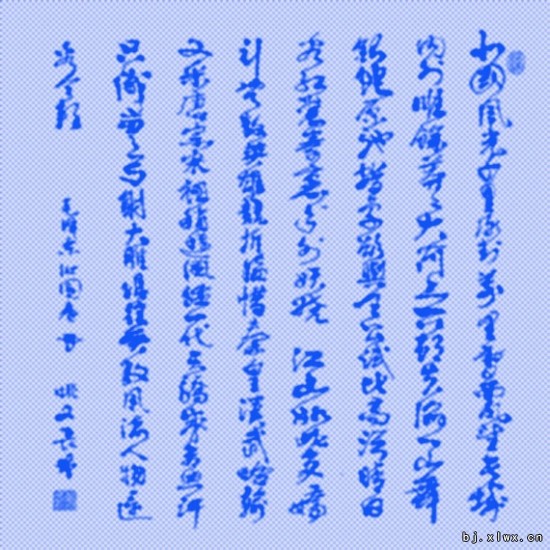 北国风光千里冰封万里雪飘望长城
内外唯馀莽々大河上下顿失滔々山舞
银蛇原驰蜡象欲与天公试比高须晴日
看红装素裹分外妖娆 江山如此多娇
引无数英雄竞折腰惜秦皇汉武略输
文采唐宗宋祖稍逊风骚一代天骄成吉思汗
只识弯弓射大雕俱往矣数风流人物还
看今朝 毛泽东沁园春雪
bj.xlwx.cn